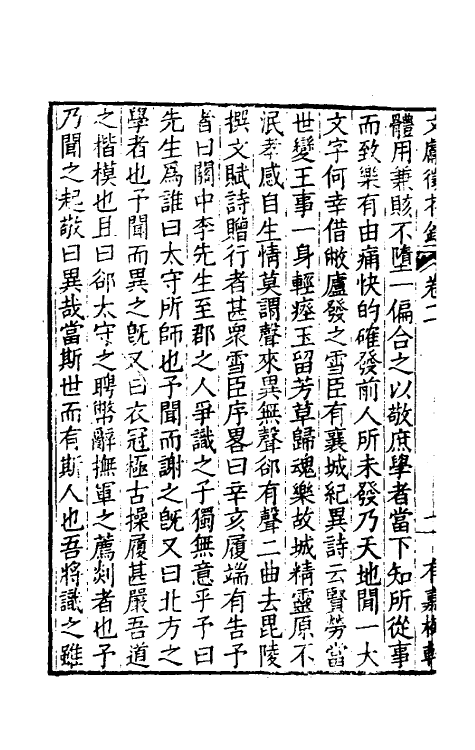 文獻徵存錄 卷二 二 有嘉樹軒
體用兼賅不墮一偏合之以敬庶學者當下知所從事
而致樂有由痛快的確發前人所未發乃天地閒一大
文字何幸借敝廬發之雪臣有襄城紀異詩云賢勞當
世變王事一身輕瘞玉留芳草歸魂樂故城精靈原不
泯孝感自生情莫謂聲來異無聲郤有聲二曲去毘陵
撰文賦詩贈行者甚衆雪臣序畧曰辛亥履端有告予
者曰關中李先生至郡之人爭識之子獨無意乎予曰
先生爲誰曰太守所師也予聞而謝之旣又曰北方之
學者也予聞而異之旣又曰衣冠極古操履甚嚴吾道
之楷模也且曰郤太守之聘幣辭撫軍之薦剡者也予
乃聞之起敬曰異哉當斯世而有斯人也吾將識之雖